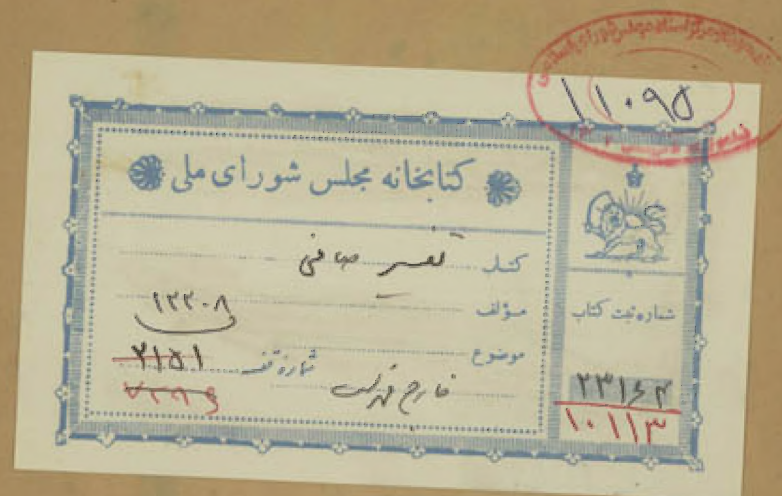 ۱۱۰۹۵
کتابخانه مجلس شورای ملی
کتاب تفسیر صافی
مؤلف
۱۲۲۰۸
موضوع
شماره قفسه ۲۱۵۱
خارج فهرست
شماره ثبت کتاب
۲۳۱۶۲
۱۰۱۱۳